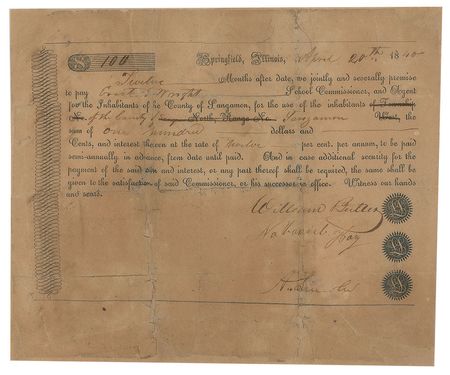 $ 100 Springfield, Illinois, April 20th 1840
Twelve Months after date, we jointly and severally promise
to pay Wright School Commissioner, and Agent
for the Inhabitants of he County of Sangamon, for the use of the inhabitants of Township
No. of the County of North, Range No. Sangamon West, the
sum of One Hundred dollars and
Cents, and interest thereon at the rate of twelve per cent. per annum, to be paid
semi-annually in advance, from date until paid. And in case additional security for
the payment of the said sum and interest, or any part thereof shall be required, the same shall be
given to the satisfaction of said Commissioner, or his successor in office. Witness our hands
and seals.
William Butler
A. Lincoln